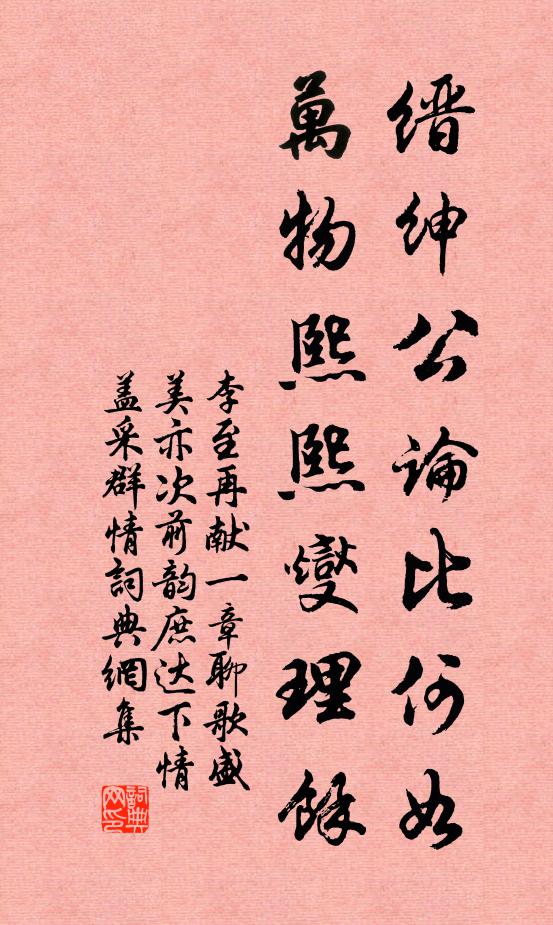 缙绅公論比何如
萬物熙熙燮理餘
李至再献一章聊歌盛
美亦次前韵庶达下情
盖采群情詞典網集
詞典网印